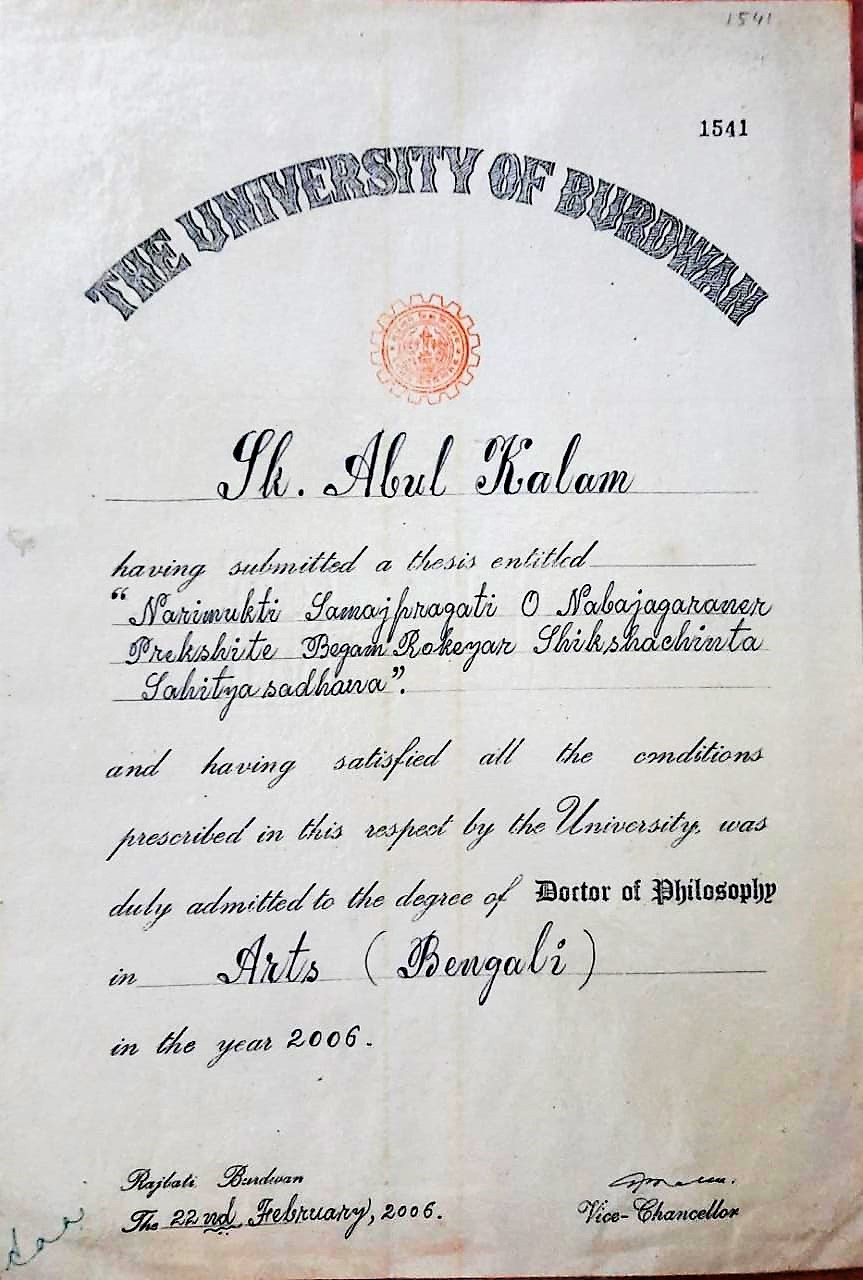 1541
1541
THE UNIVERSITY OF BURDWAN
Sk. Abul Kalam
having submitted a thesis entitled
"Narimukti Samajpragati O Nabajagaraner
Prekshite Begam Rokeyar Shikshachinta
Sahityasadhana".
and having satisfied all the conditions
prescribed in this respect by the University, was
duly admitted to the degree of Doctor of Philosophy
in Arts (Bengali)
in the year 2006.
Rajbati Burdwan
The 22nd February, 2006.
Vice-Chancellor